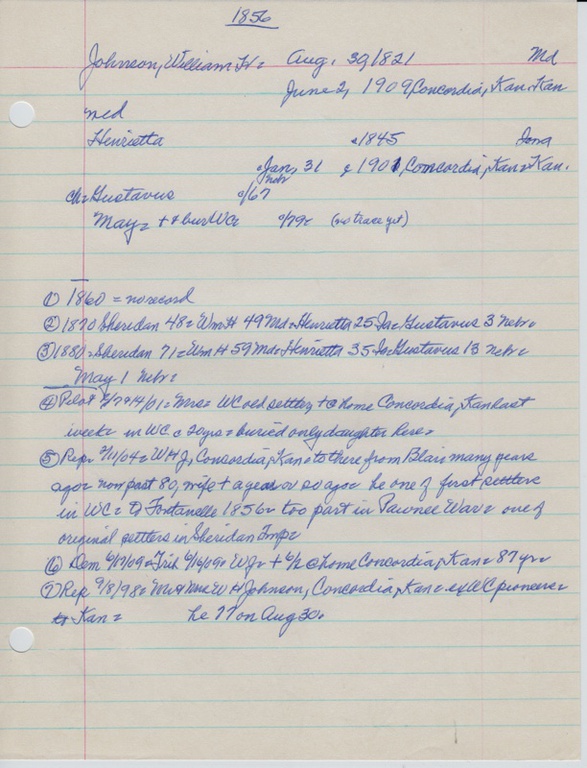 1856
Johnson, William H= Aug. 30, 1821 Md
June 2, 1909, Concordia, Kan. Kan
med
Henrietta c1845 Iowa
Jan 31 1901, Concordia, Kan= Kan.
Nebr
ch= Gustavus c/67
May= + + bur WC c/79c (no trace yet)
① 1860 = no record
② 1870 Sheridan 48= Wm H 49 Md= Henrietta 25 Ia= Gustavus 3 Nebr=
③ 1880= Sheridan 71= Wm H 59 Md= Henrietta 35 Ia= Gustavus 13 Nebr=
May 1 Nebr=
④ Pilot 2/7+14/01= Mrs= WC old settler, + @ home Concordia, Kan last
week= in WC c 20yrs= buried only daughter here=
⑤ Rep= 2/11/04= W H J, Concordia, Kan= to there from Blair many years
ago= now past 80, wife + a year or so ago= he one of first settlers
in WC= to Fontanelle 1856= too part in Pawnee War= one of
original settlers in Sheridan Twp=
⑥ Dem 6/17/09= Trib 6/16/09= WJ= + 6/2 @ home Concordia, Kan= 87 yr=
⑦ Rep 9/8/98= Mr + Mrs W H Johnson, Concordia, Kan= ex WC pioneers=
to Kan= he 77 on Aug 30.